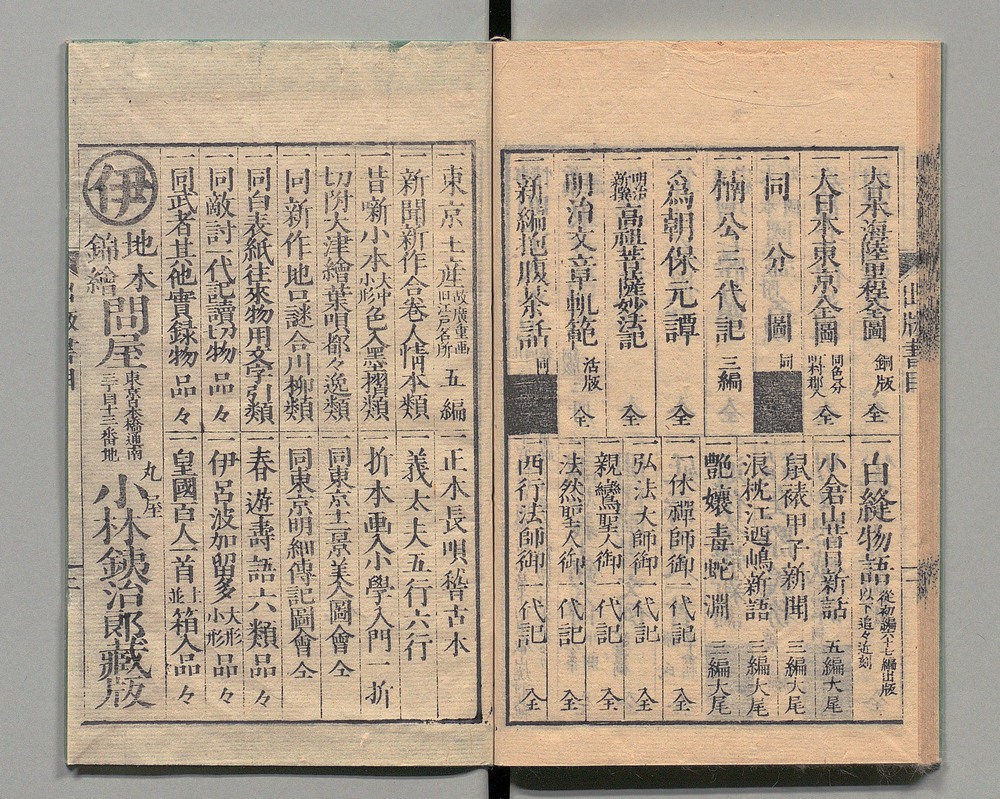 一大日本海陸里程全圖 銅版 全
一大日本東京全圖 同色分 全
一同 分 圖 同
一楠公三代記 三編 全
一爲朝保元譚 全
一明治新撰高祖菩薩妙法記 全
一明治文章軌範 活版 全
一新編抱腹茶話 同
一白縫物語 從初編六十七編出版 以下追々近刻
一小倉山昔日新話 五編大尾
一鼠裱甲子新聞 三編大尾
一浪枕江迺嶋新語 三編大尾
一艷孃毒蛇淵 三編大尾
一一休禪師御一代記 全
一弘法大師御一代記 全
一親鸞聖人御一代記 全
一法然聖人御一代記 全
一西行法師御一代記 全
出版書目
一東京土産 故廣重画 旧江戸名所 五編
一新聞新作合卷人情本類
一昔噺小本 大中小形 色入墨摺類
一切附大津繪葉唄都々逸類
一同新作地口謎合川柳類
一同白表紙往來物用文字引類
一同敵討一代記讀切物品々
一同武者其他實録物品々
一正本長唄稽古本
一義太夫五行六行
一折本画入小學入門一折
一同東京土景美人圖會 全
一同東京明細傳記圖會 全
一春遊壽語六類品々
一伊呂波加留多 大形小形 品々
一皇國百人一首 並上 箱入品々
伊 地本錦繪問屋 東京日本橋通南三丁目十三番地 丸屋 小林鉄治郎藏版